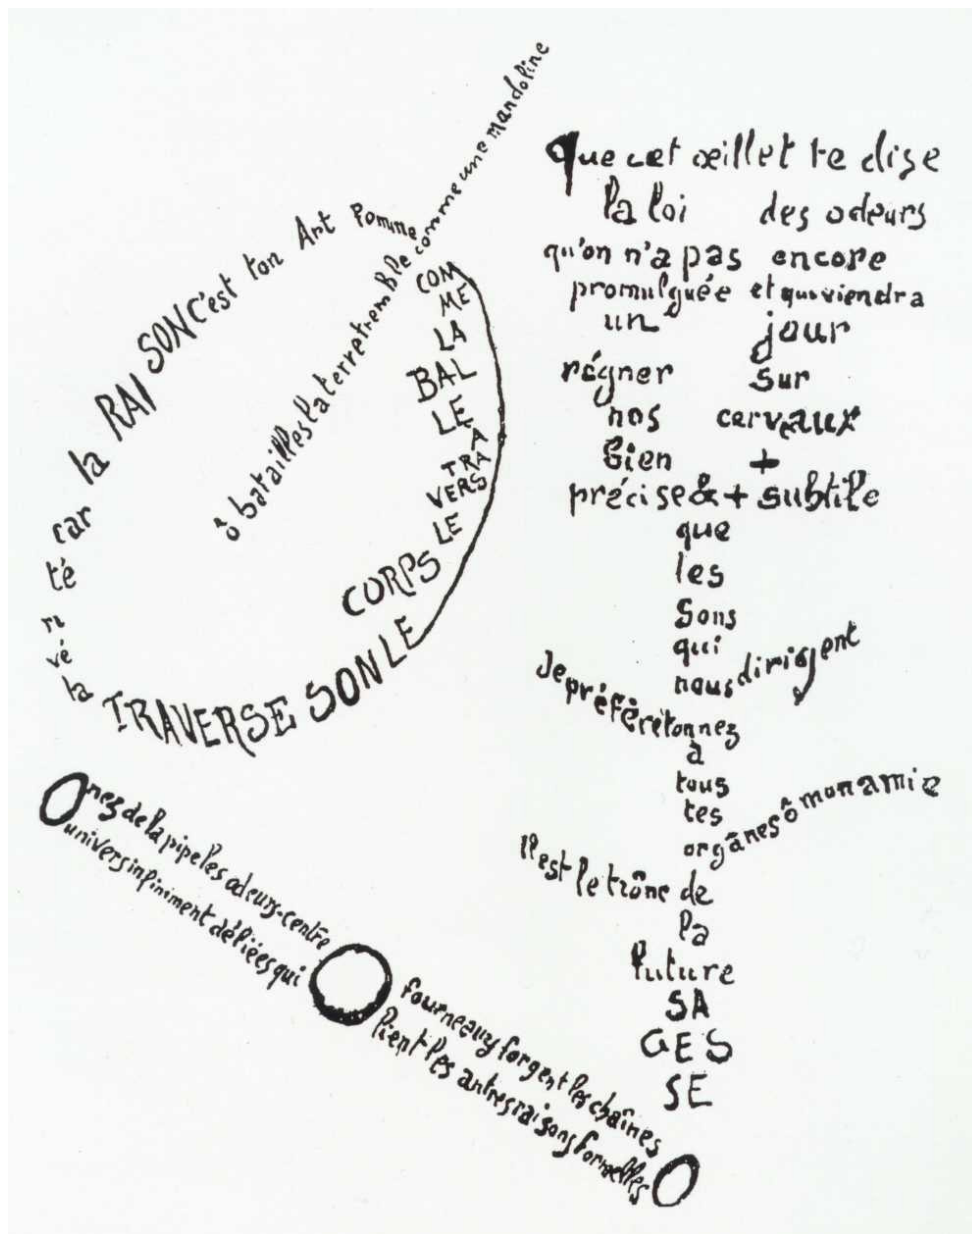 ô batailles la terre tremble comme une mandoline
COM
ME
LA
BAL
LE
À
TRA
VERS
LE
CORPS
LE
SON
TRAVERSE
la
vé
ri
té
car
la
RAISON c'est ton Art Femme
Que cet œillet te dise
la loi des odeurs
qu'on n'a pas encore
promulguée et qui viendra
un jour
régner sur
nos cerveaux
bien +
précise & + subtile
que
les
sons
qui
nous dirigent
Je préfère ton nez
à
tous
tes
organes ô mon amie
Il est le trône de
la
future
SA
GES
SE
O nez de la pipe les odeurs-centre O fourneau y forgent les chaînes
univers infiniment déliées qui lient les autres raisons formelles O